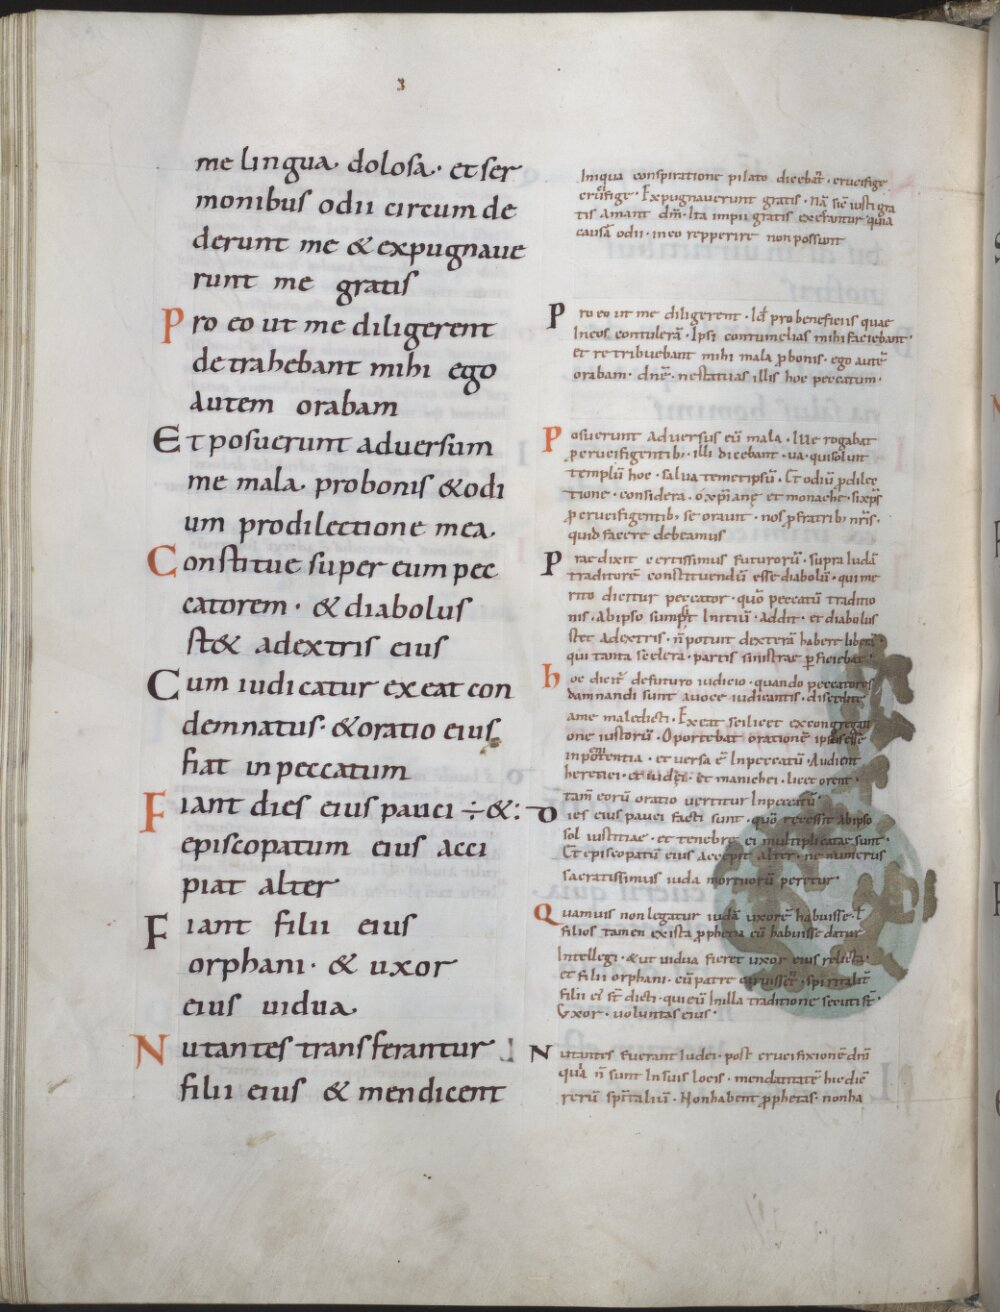 3
me lingua. dolosa.. et ser
monibus odii circum de
derunt me & expugnaue
runt me gratis
Pro eo ut me diligerent
detrahebant mihi ego
autem orabam
Et posuerunt aduersum
me mala. pro bonis & odi
um pro dilectione mea.
Constitue super eum pec
catorem · & diabolus
st& a dextris eius
Cum iudicatur exeat con
demnatus· & oratio eius
fiat in peccatum
Fiant dies eius pauci ÷ &:
episcopatum eius acci
piat alter·
Fiant filii eius
orphani · & uxor
eius uidua.
Nutantes transferantur
filii eius & mendicent
Iniqua conspiratione pilato dicebant · crucifige
crucifige · Expugnauerunt gratis · Nā sic iusti gra
tis amant dm̄ · Ita impii gratis execrantur quia
causā odii · in eo repperire non possunt
Pro eo ut me diligerent · Id pro beneficiis quae
In eos contulerā · Ipsi contumelias mihi faciebant ·
et retribuebant mihi mala ꝓ bonis · ego autē
orabam · dne · ne statuas illis hoc peccatum ·
Posuerunt aduersus eū mala · Ille rogabat
ꝑ crucifigentib; · illi dicebant · ua · qui soluit
templū hoc · salua temetipsū · Et odiū ꝓ dilec
tione · considera · o xp̄iane et monache · si xp̄s
ꝓ crucifigentib; se orauit · nos ꝓ fratrib; nr̄is ·
quid facere debeamus
Praedixit certissimus futurorū · supra iudā
traditorē constituendū esse diabolū · qui me
rito dicitur peccator · quō peccatū traditio
nis · ab ipso sumpsit Initiū · Addit · et diabolus
stet a dextris · n̄ potuit dexterā habere
qui tanta scelera · partis sinistrae ꝑficiebat
hoc dicit de futuro iudicio · quando peccatores
damnandi sunt a uoce iudicantis · discedite
a me maledicti · Exeat scilicet ex congregati
one iustorū · Oportebat orationē
et uersa ē In peccatū · Audient
heretici · et iudei · et manichei · licet orent ·
tam eorū oratio uertitur In peccatū ·
Dies eius pauci facti sunt · quō recessit ab ipso
sol iustitiae · et tenebre ei multiplicatae sunt ·
Et episcopatū eius accepit alter · ne numerus
sacratissimus iuda mortuorū periretur ·
Quamuis non legatur iudā uxorē habuisse · l̄
filios tamen ex ista ꝓphetia eū habuisse datur
Intellegi · & ut uidua fieret uxor eius relicta ·
et filii orphani · cū patre caruissent · spiritalit̄
filii ei st̄ dicti · qui eū In illa traditione secuti st̄ ·
Uxor · uoluntas eius ·
Nutantes fuerant Iudei · post crucifixionē dn̄i
quia n̄ sunt In suis locis · mendicitatē hic dic̄
rerū spiritaliū · Non habent ꝓphetas · non ha